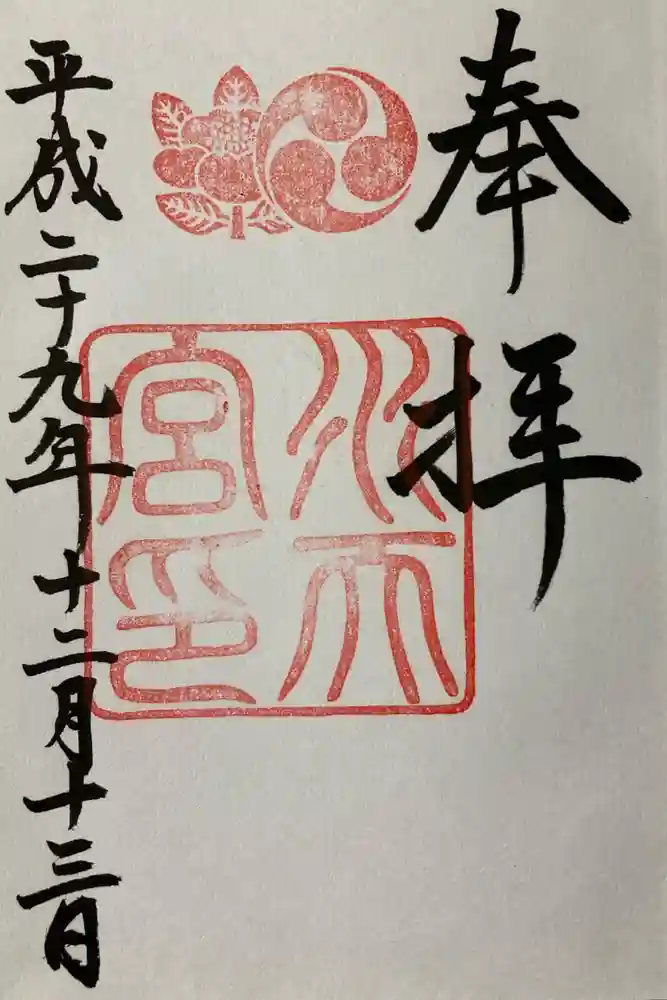 奉拝
水天
宮印
平成二十九年十二月十三日